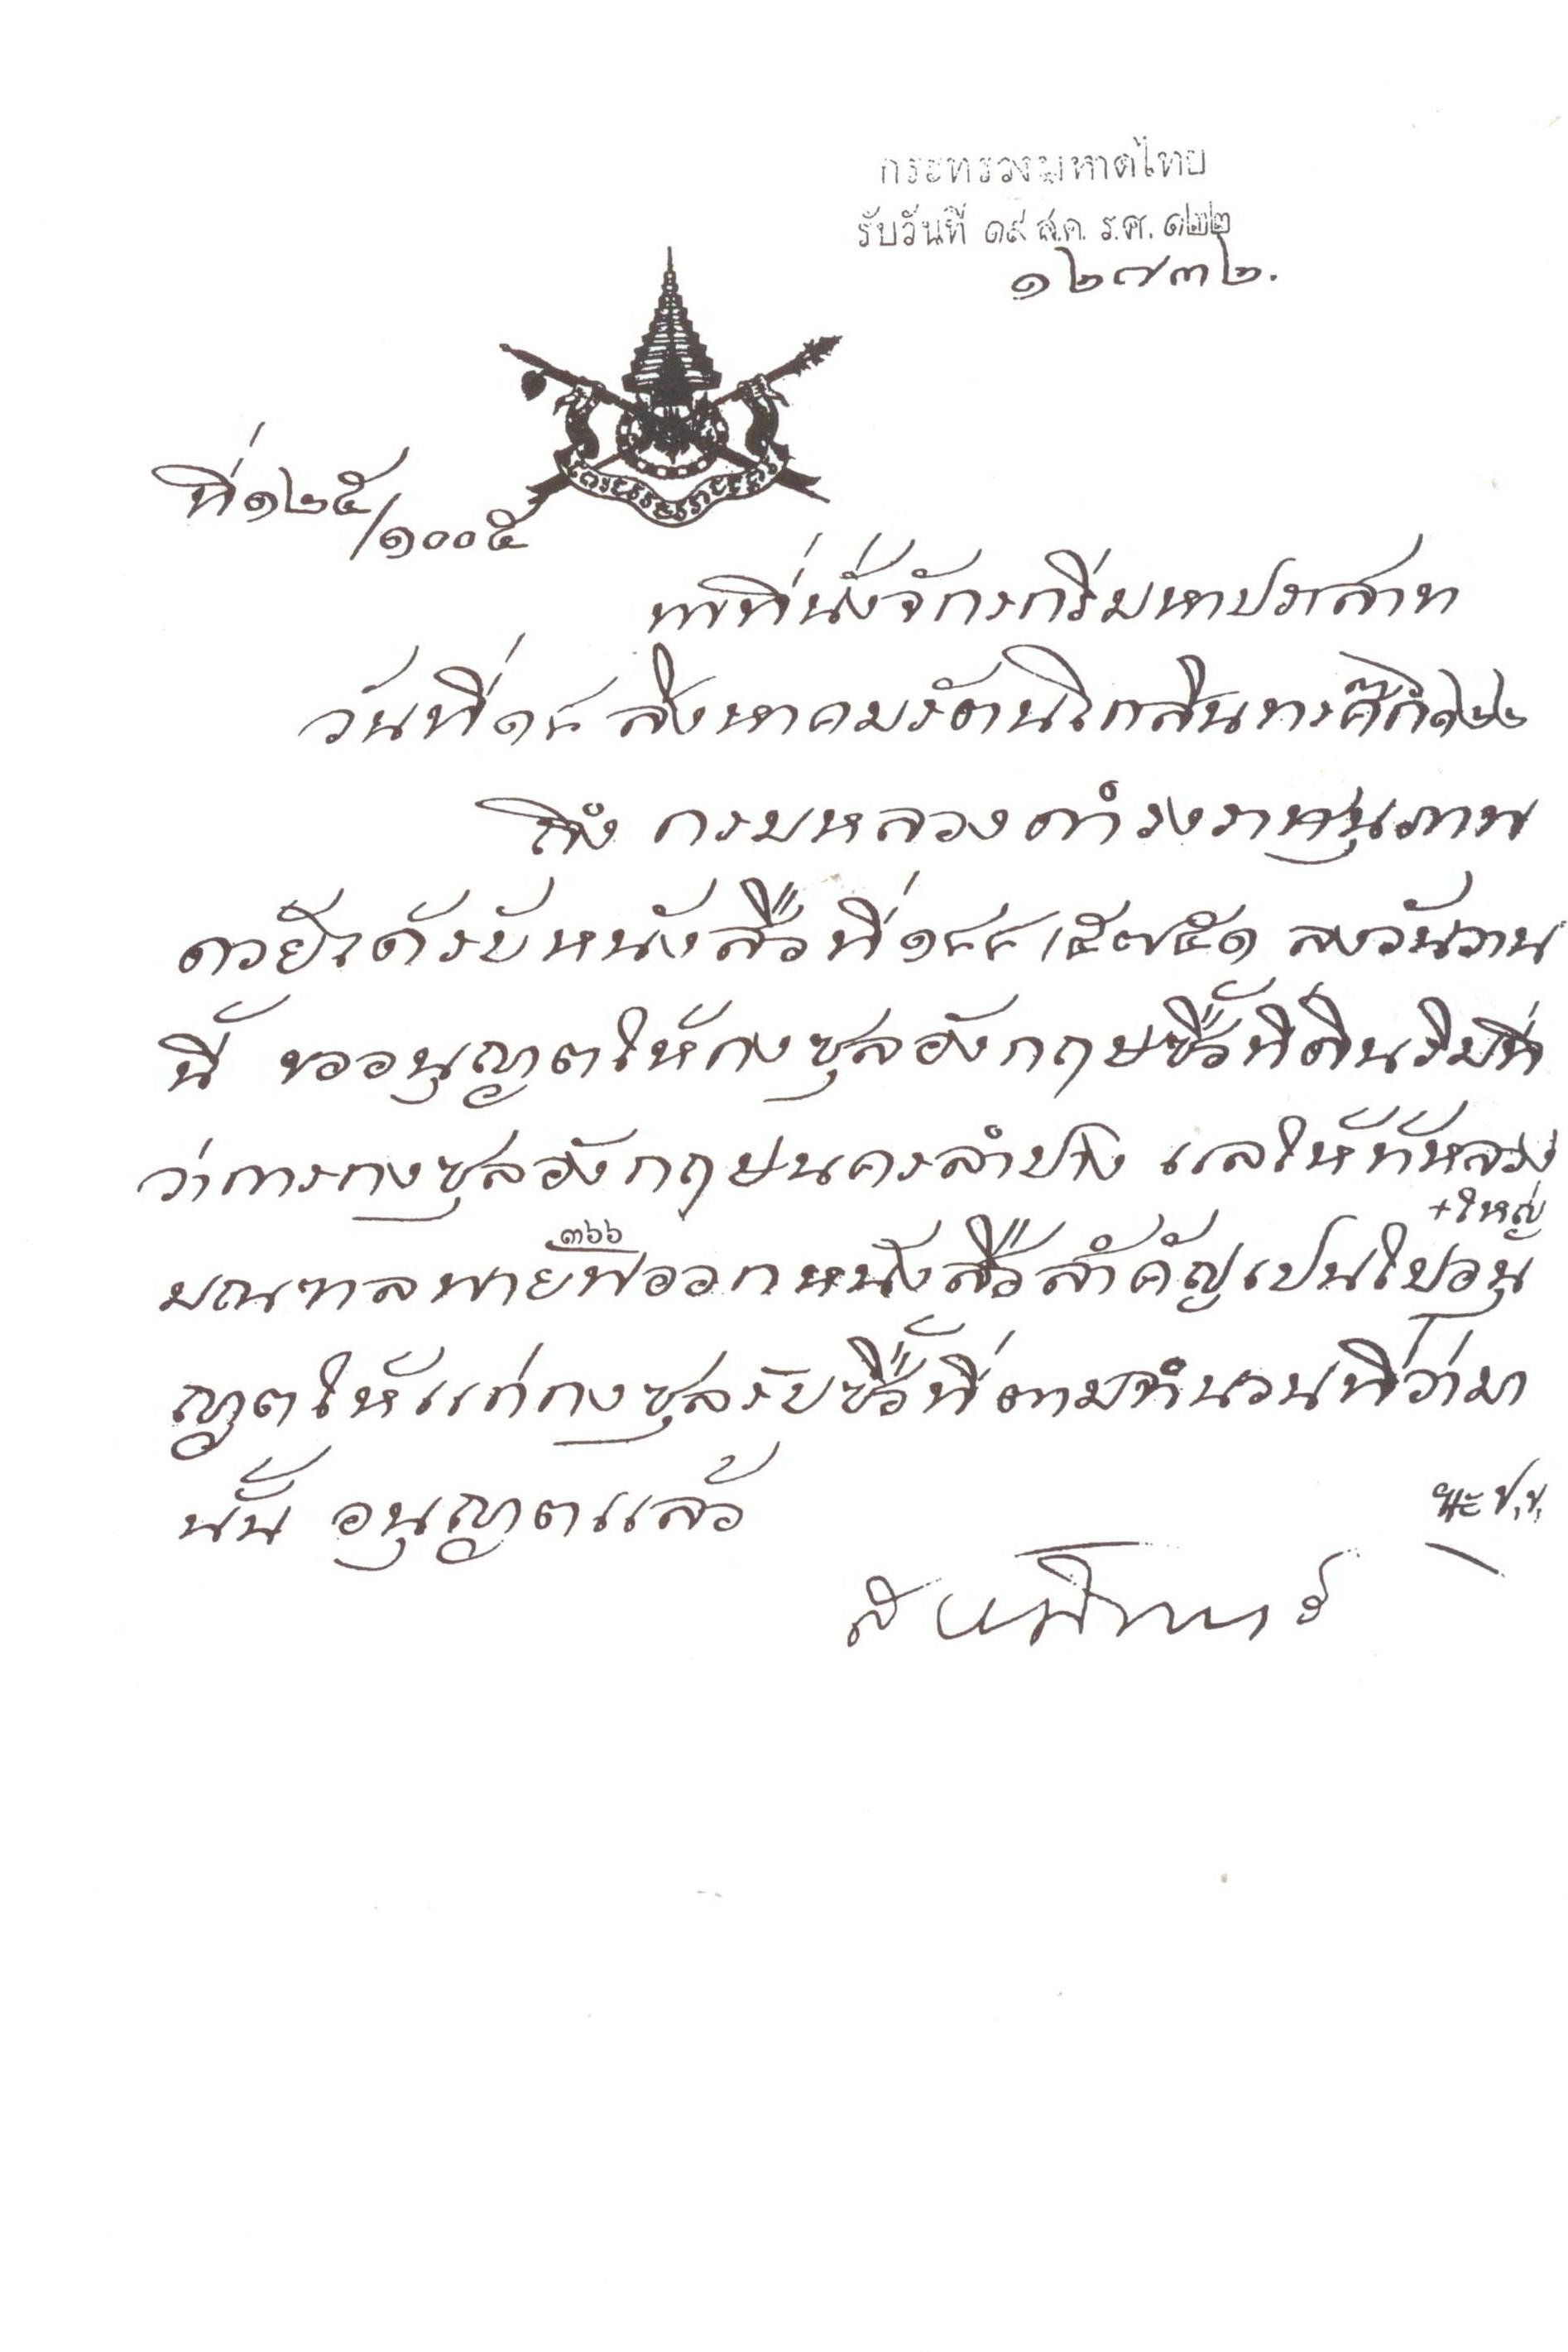 กระทรวงมหาดไทย
รับวันที่ ๑๙ ส.ค. ร.ศ. ๑๒๒
๑๒๗๓๒.
ที่ ๑๒๕/๑๐๐๕
พที่นั่งจักรกรีมหาปราสาท
วันที่ ๑๘ สิงหาคม รัตนโกสินทรศก ๑๒๒
ถึง กรมหลวงดำรงราชานุภาพ
ด้วยได้รับหนังสือที่ ๑๔๔/๕๗๕๑ ลงวันวาน
นี้ ขออนุญาตให้กงซุลอังกฤษซื้อที่ดินริมที่
ว่าการกงซุลอังกฤษนครลำปาง แลให้ข้าหลวง
+ใหญ่
๓๖๖
มณฑลพายัพออกหนังสือสำคัญเปนใบอนุ
ญาตให้แก่กงซุลรับซื้อที่ตามจำนวนที่ว่ามา
นั้น อนุญาตแล้ว
สยามินทร์